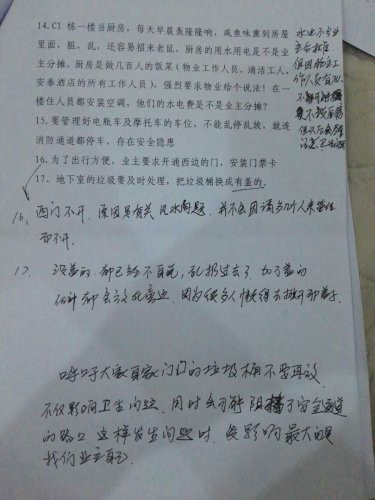 14.C1 栋一楼当厨房，每天早晨轰隆隆响，咸鱼味熏到房屋
里面，脏，乱，还容易招来老鼠，厨房的用水用电是不是业
主分摊。厨房是做几百人的饭菜（物业工作人员，清洁工人，
安泰酒店的所有工作人员），强烈要求物业给个说法！在一
楼住人员都安装空调，他们的水电费是不是业主分摊？
15.要管理好电瓶车及摩托车的车位，不能乱停乱放，就连
消防通道都停车，存在安全隐患
16.为了出行方便，业主要求开通西边的门，安装门禁卡
17、地下室的垃圾要及时处理，把垃圾桶换成有盖的.
水电不是业
主分摊
但因物业工
作人员
16、西门不开. 原因是有关风水问题. 并不会因请多几个人来管住
而不开.
17、没盖的 都已经不耳晓，乱扔过去了 加了盖的
估计都会 旁边. 因为很多人懒得去掀开那盖子.
呼吁大家自家门口的垃圾桶不要再放
不仅影响卫生问题. 同时 阻挡了安全通道
的路口 这样发生问题时 受影响最大的是
我们业主自己.